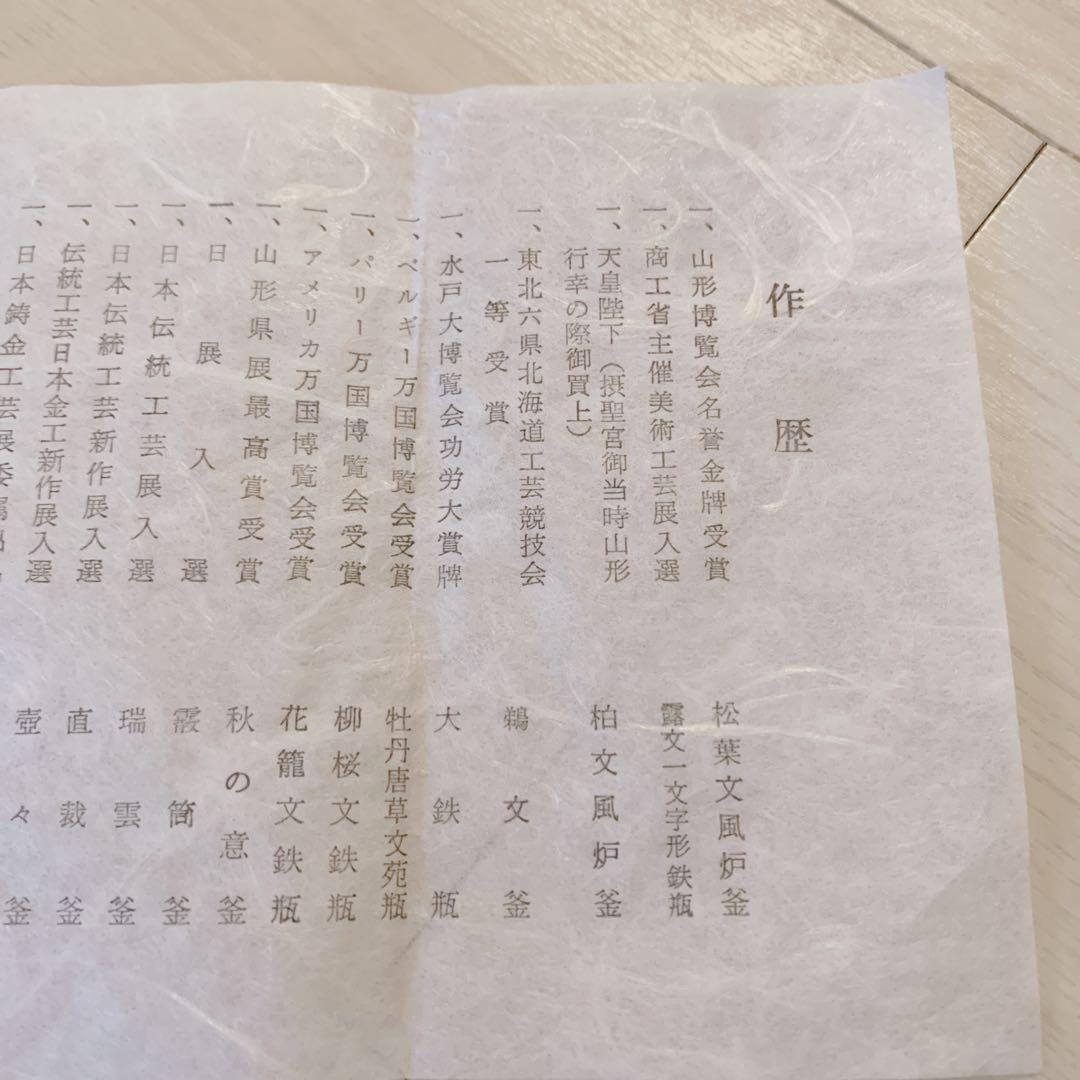 作歴
一、山形博覧会名誉金牌受賞 松葉文風炉釜
一、商工省主催美術工芸展入選 露文一文字形鉄瓶
一、天皇陛下（摂聖宮御当時山形
行幸の際御買上） 柏文風炉釜
一、東北六県北海道工芸競技会
一等受賞 鵜文釜
一、水戸大博覧会功労大賞牌 大鉄瓶
一、ベルギー万国博覧会受賞 牡丹唐草文苑瓶
一、パリー万国博覧会受賞 柳桜文鉄瓶
一、アメリカ万国博覧会受賞 花籠文鉄瓶
一、山形県展最高賞受賞 秋の意釜
一、日展入選 筒釜
一、日本伝統工芸展入選 瑞雲釜
一、日本伝統工芸新作展入選 直裁釜
一、伝統工芸日本金工新作展入選 壺々釜
一、日本鋳金工芸展委嘱出